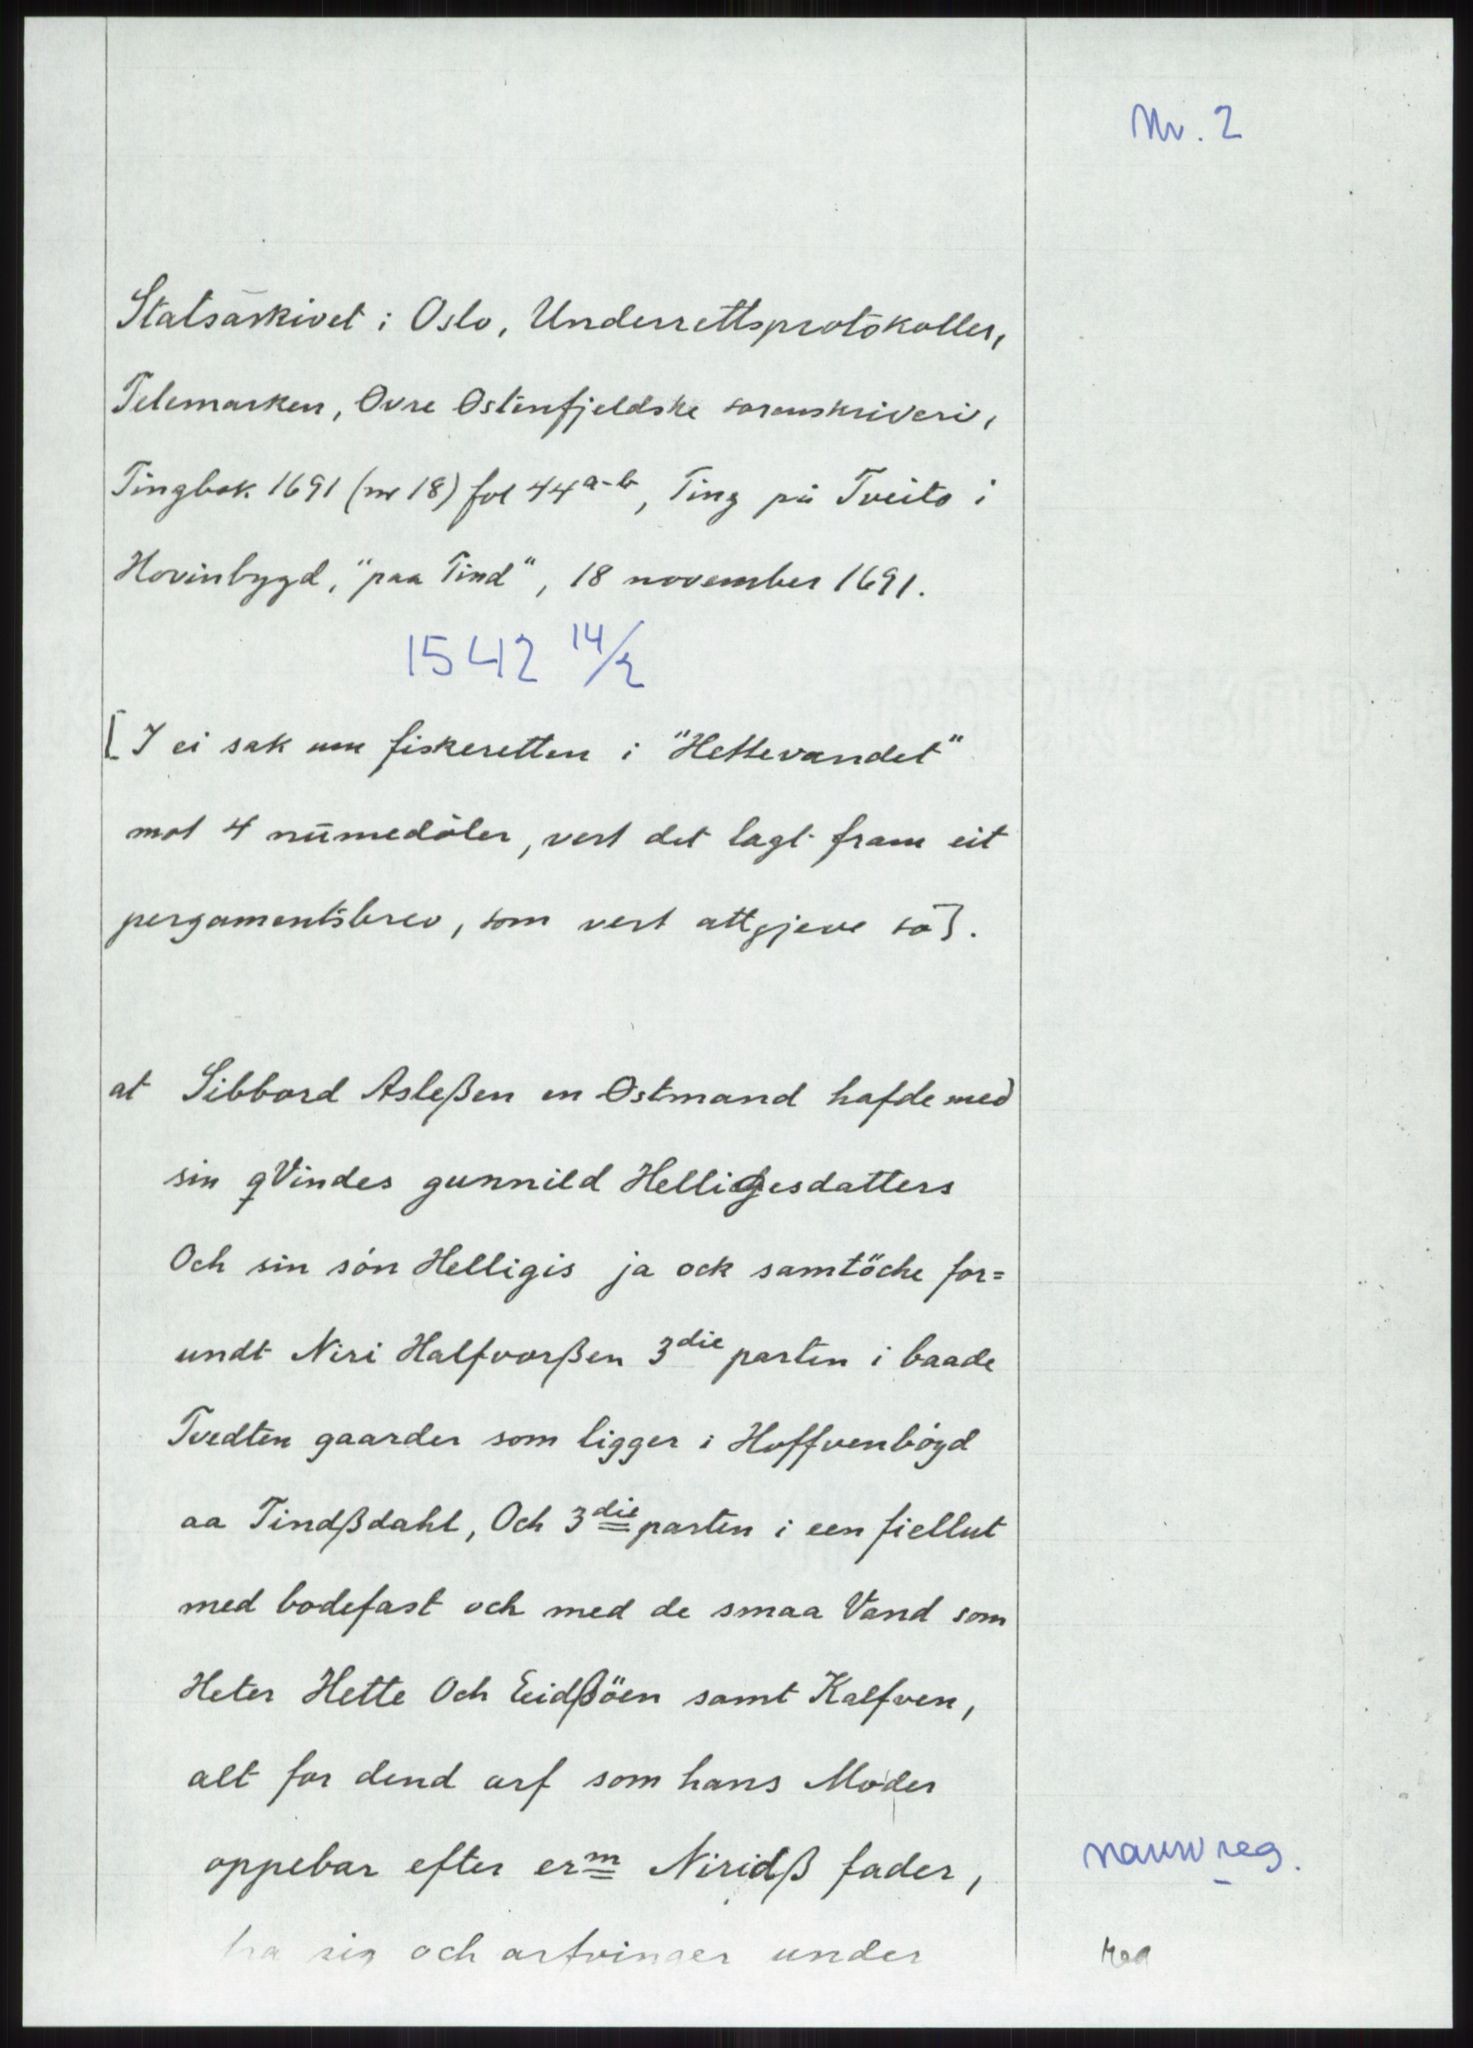 Nr. 2
Statsarkivet i Oslo, Underrettsprotokoller,
Telemarken, Øvre Østenfjeldske sorenskriveri,
Tingbok 1691 (nr 18) fol 44 a-b, Ting på Tveito i
Hovinbygd, "paa Tind", 18 november 1691.
1542 14/2
[I ei sak um fiskeretten i "Hettevandet"
mot 4 numedøler, vert det lagt fram eit
pergamentsbrev, som vert attgjeve so].
at Sibbord Asleßen en Østmand hafde med
sin qVindes gunnild Helligesdatters
Och sin són Helligis ja ock samtöche for=
undt Niri Halfvorßen 3die parten i baade
Tvedten gaarder som ligger i Hoffvenbógd
aa Tindßdahl, Och 3die parten i een fiellut
med bodefast och med de smaa Vand som
Heter Hette Och Eeidßöen samt Kalfven,
alt for dend arf som hans Moder
oppebar efter erm Niridß fader,
fra sig och arfvinger under
navnreg.